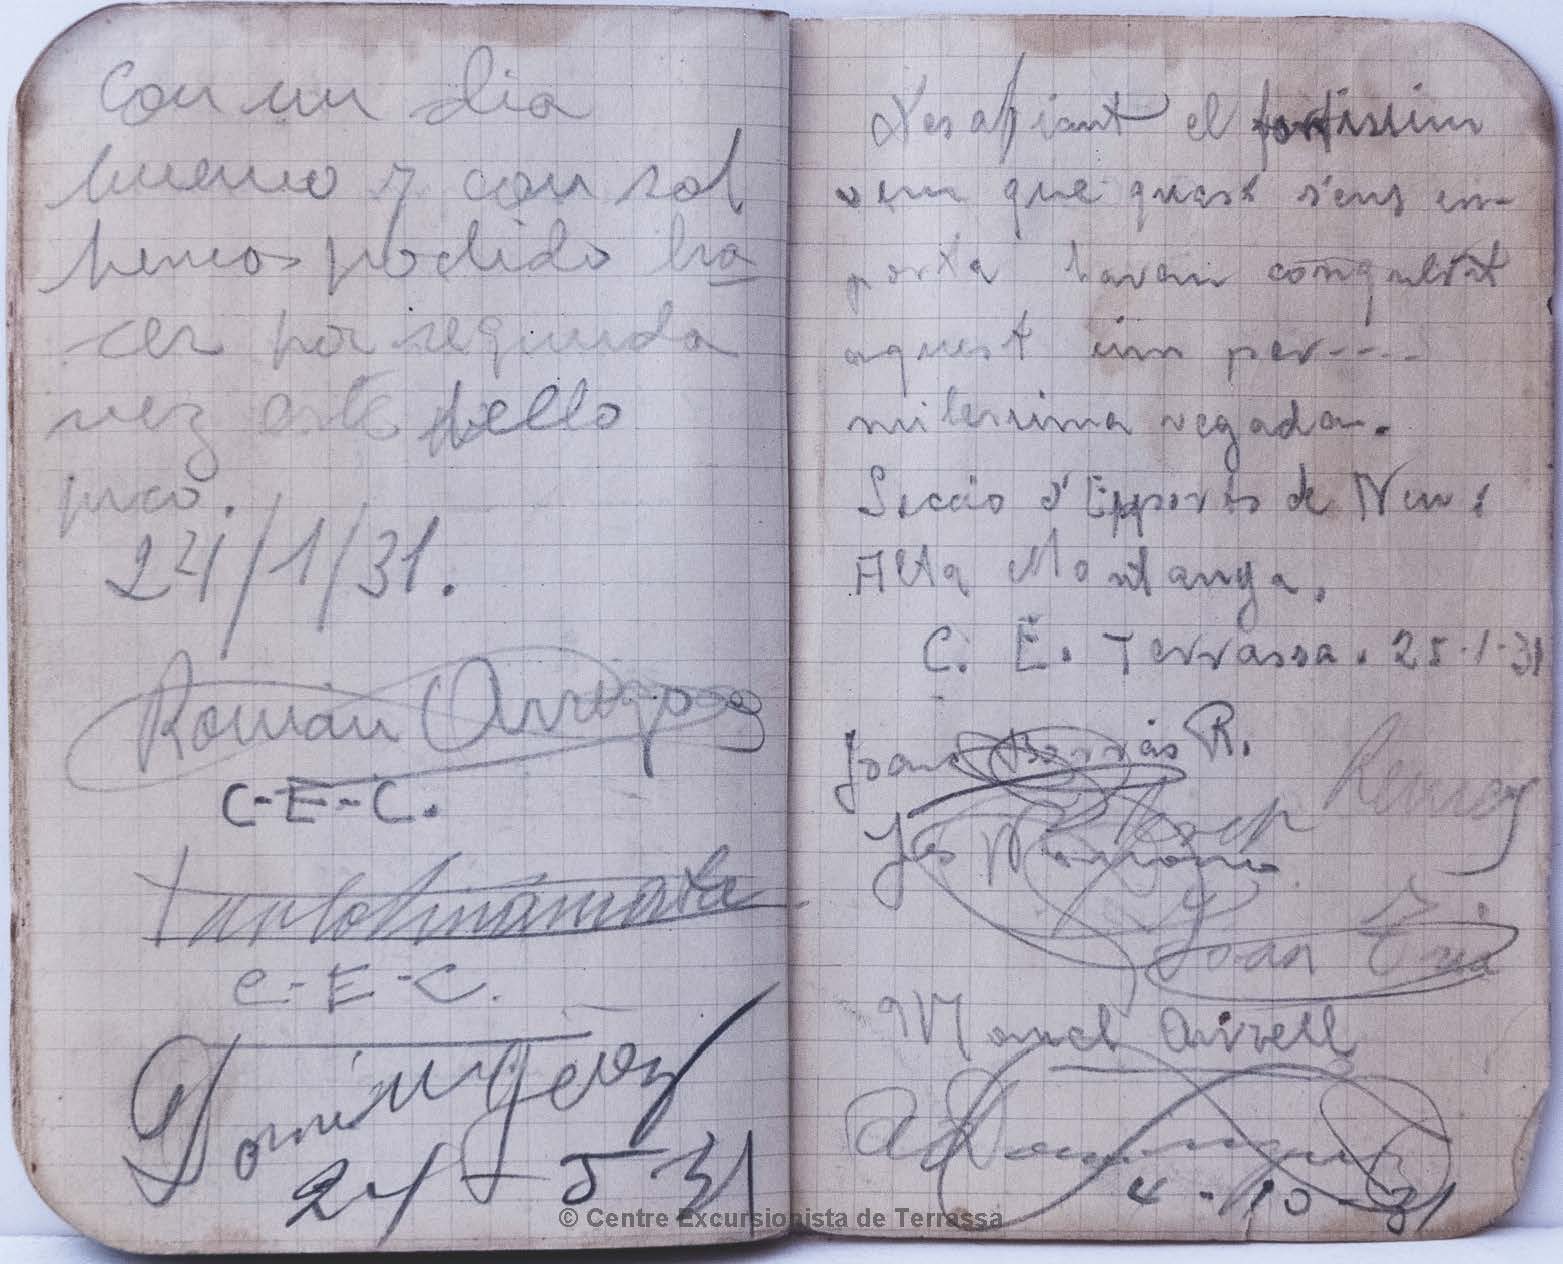 Con un dia
bueno y con sol
hemos podido ha
cer por segunda
vez este bello
pico.
24/1/31.
Román
C-E-C.
C-E-C.
24-5-31
Desafiant el fortissim
vem que quasi s'ens em-
porta havem conquistat
aquest cim per----
milessima vegada.
Secció d'Epports de Neu i
Alta Montanya.
C. E. Terrassa. 25-1-31
Joan Barrás R.
Josep
Joan
Manel Arvell
A Dominguez
4-10-31
© Centre Excursionista de Terrassa